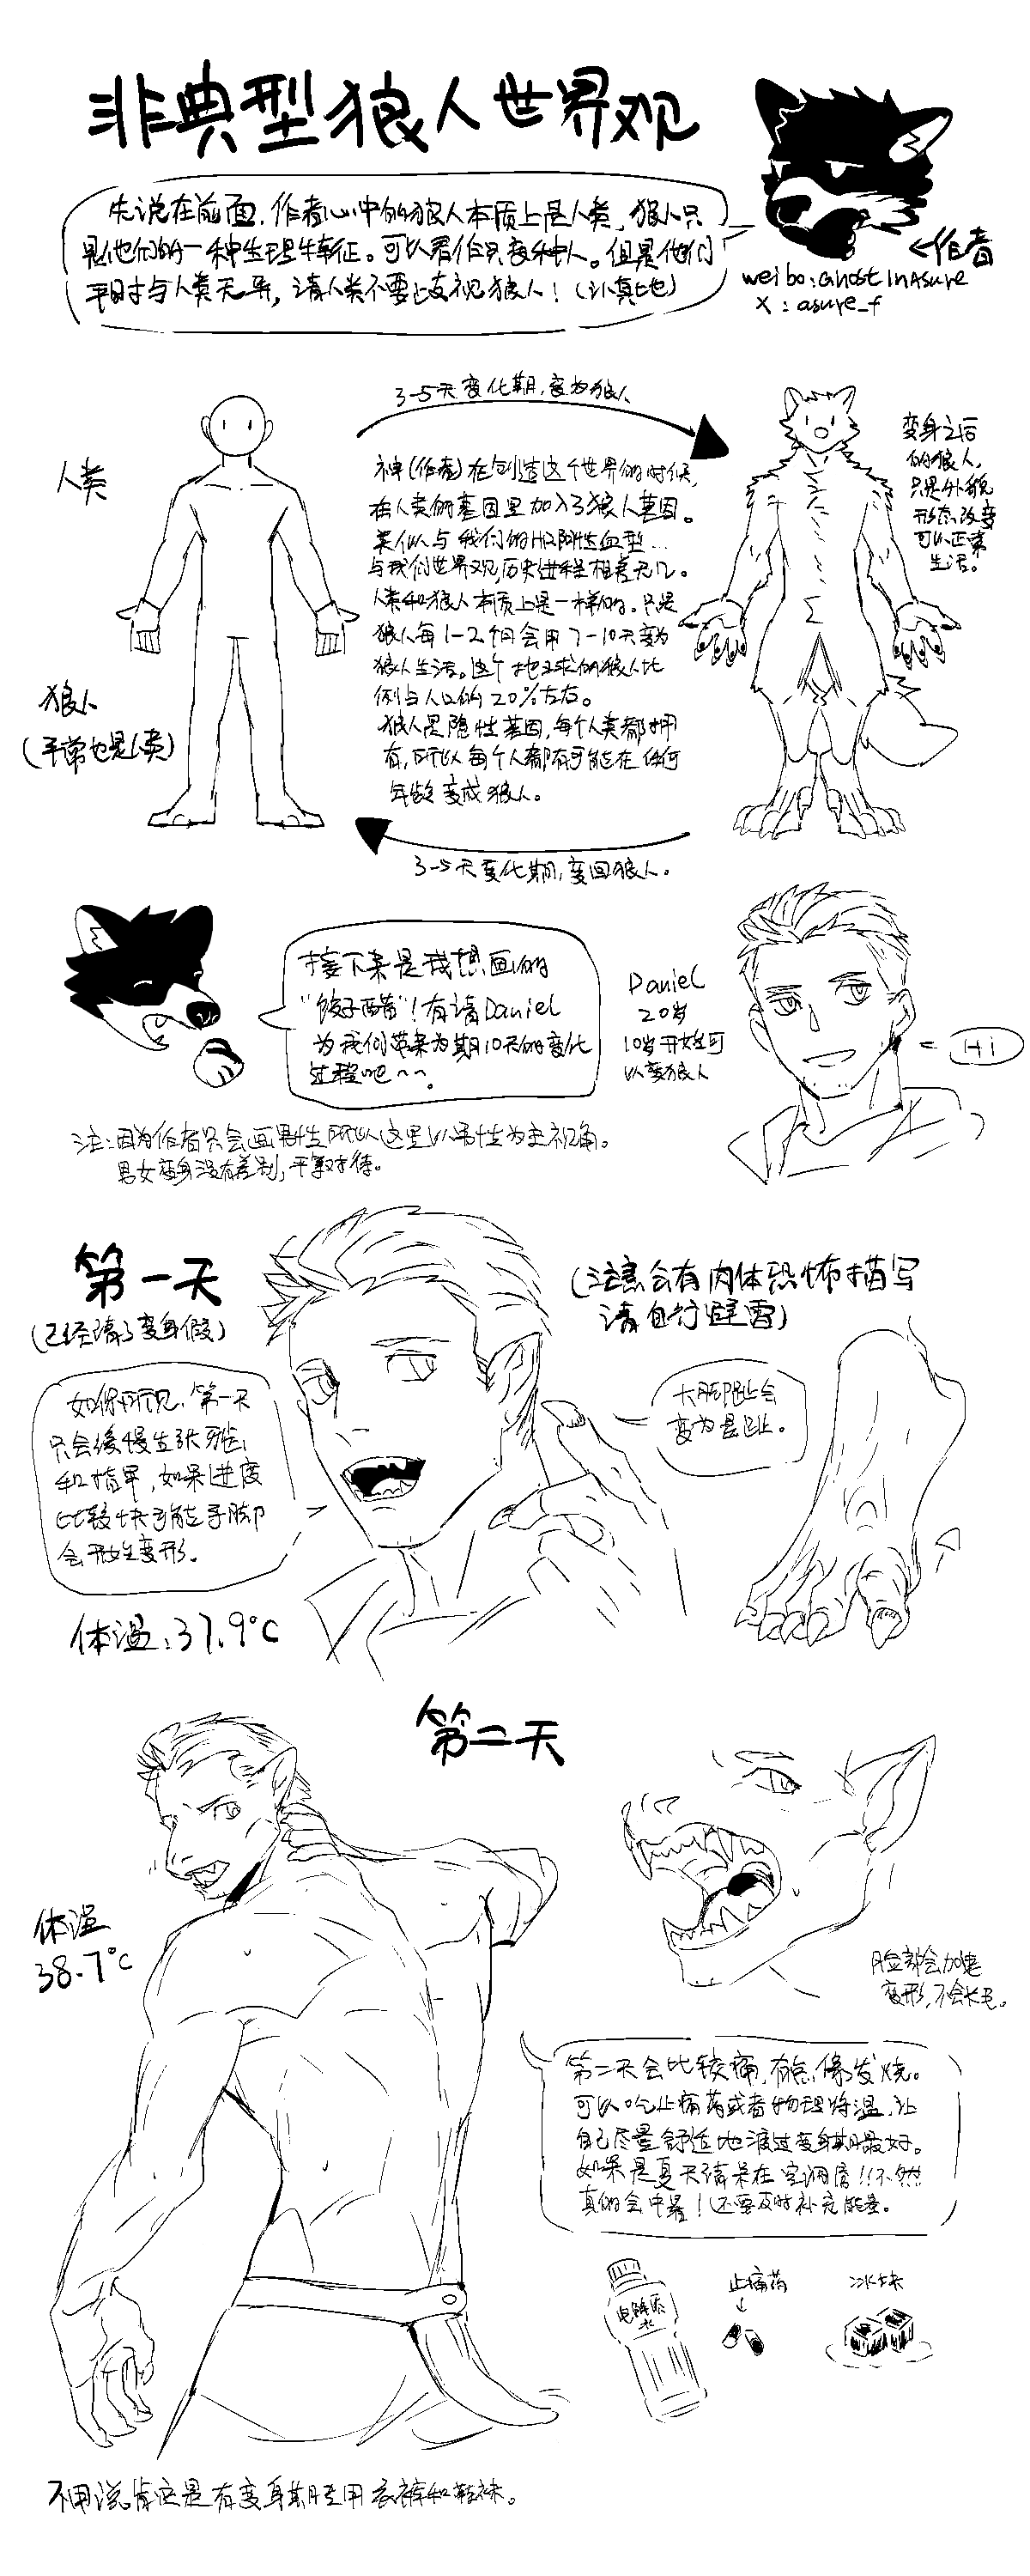 非典型狼人世界观
先说在前面,作者心中的狼人本质上是人类,狼人只
是他们的一种生理特征。可以看作只变种人。但是他们
平时与人类无异,请人类不要歧视狼人!(认真地)
←作者
weibo:GhostInAsure
X:asure_f
3-5天变化期,变为狼人
人类
狼人
(平常也是人类)
神(作者)在创造这个世界的时候,
在人类的基因里加入了狼人基因。
类似与我们的HR阴性血型...
与我们世界观,历史进程相差无几。
人类和狼人本质上是一样的。只是
狼人每1-2个月会用7-10天变为
狼人生活。这个地球的狼人比
例占人口的20%左右。
狼人是隐性基因,每个人类都拥
有,所以每个人都有可能在任何
年龄变成狼人。
变身之后
的狼人,
只是外貌
形态改变
可以正常
生活。
3-5天变化期,变回狼人。
接下来是我想画的
“饺子醋”!有请Daniel
为我们带来为期10天的变化
过程吧~~。
Daniel
20岁
10岁开始可
以变狼人
Hi
注:因为作者只会画男性所以这里以男性为主视角。
男女变身没有差别,平等对待。
第一天
(已经请了变身假)
(注意会有肉体恐怖描写
请自行避雷)
如你所见,第一天
只会缓慢生长牙齿
和指甲,如果进度
比较快可能手脚
会开始变形。
大脚趾会
变为悬趾。
体温:37.9℃
第二天
体温
38.7℃
脸部会加速
变形,不会长毛。
第二天会比较痛,有点像发烧。
可以吃止痛药或者物理降温,让
自己尽量舒适地渡过变身期最好。
如果是夏天请呆在空调房!!不然
真的会中暑!还要及时补充能量。
电解质
水
止痛药
冰块
不用说肯定是有变身期专用衣裤和鞋袜。